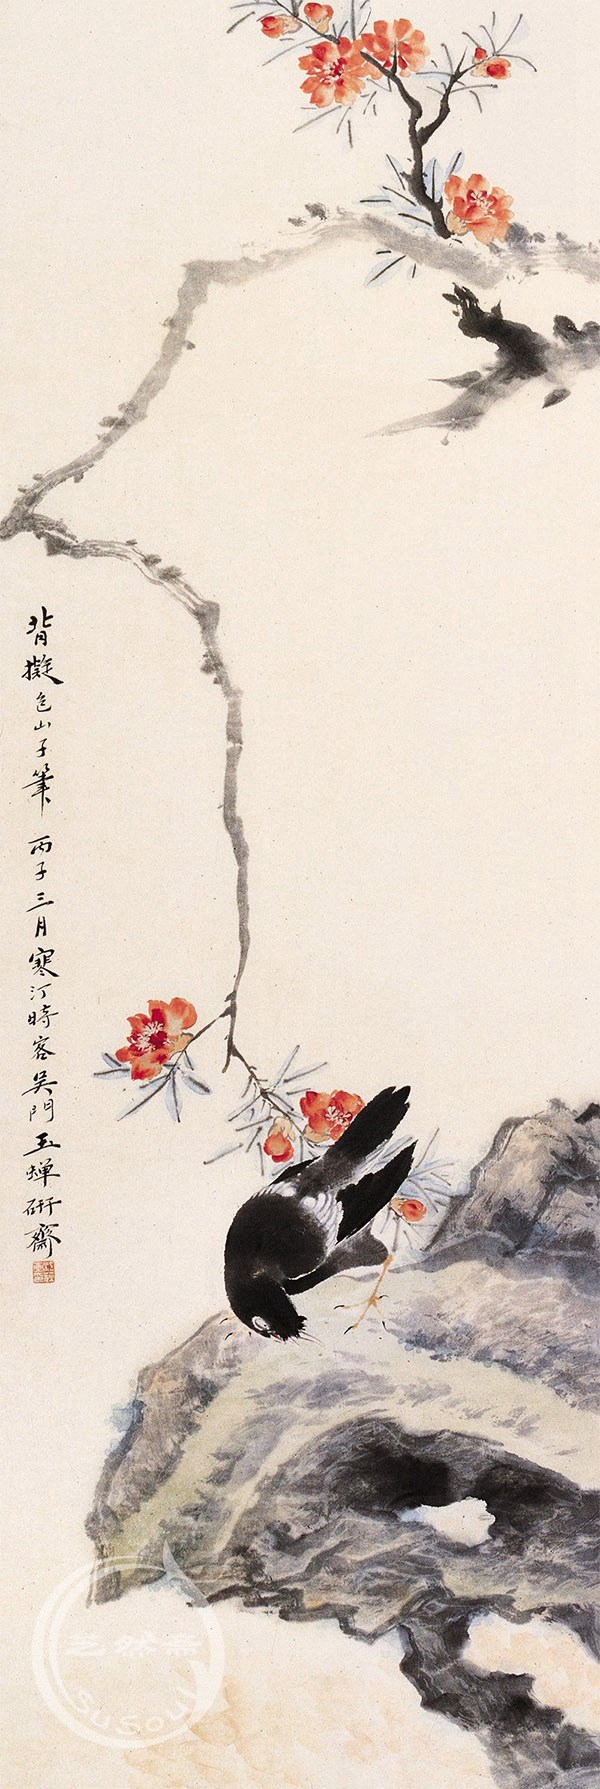 背擬包山子筆 丙子三月寒汀時客吳門玉蟬硏齋
艺然斋
SuSoul